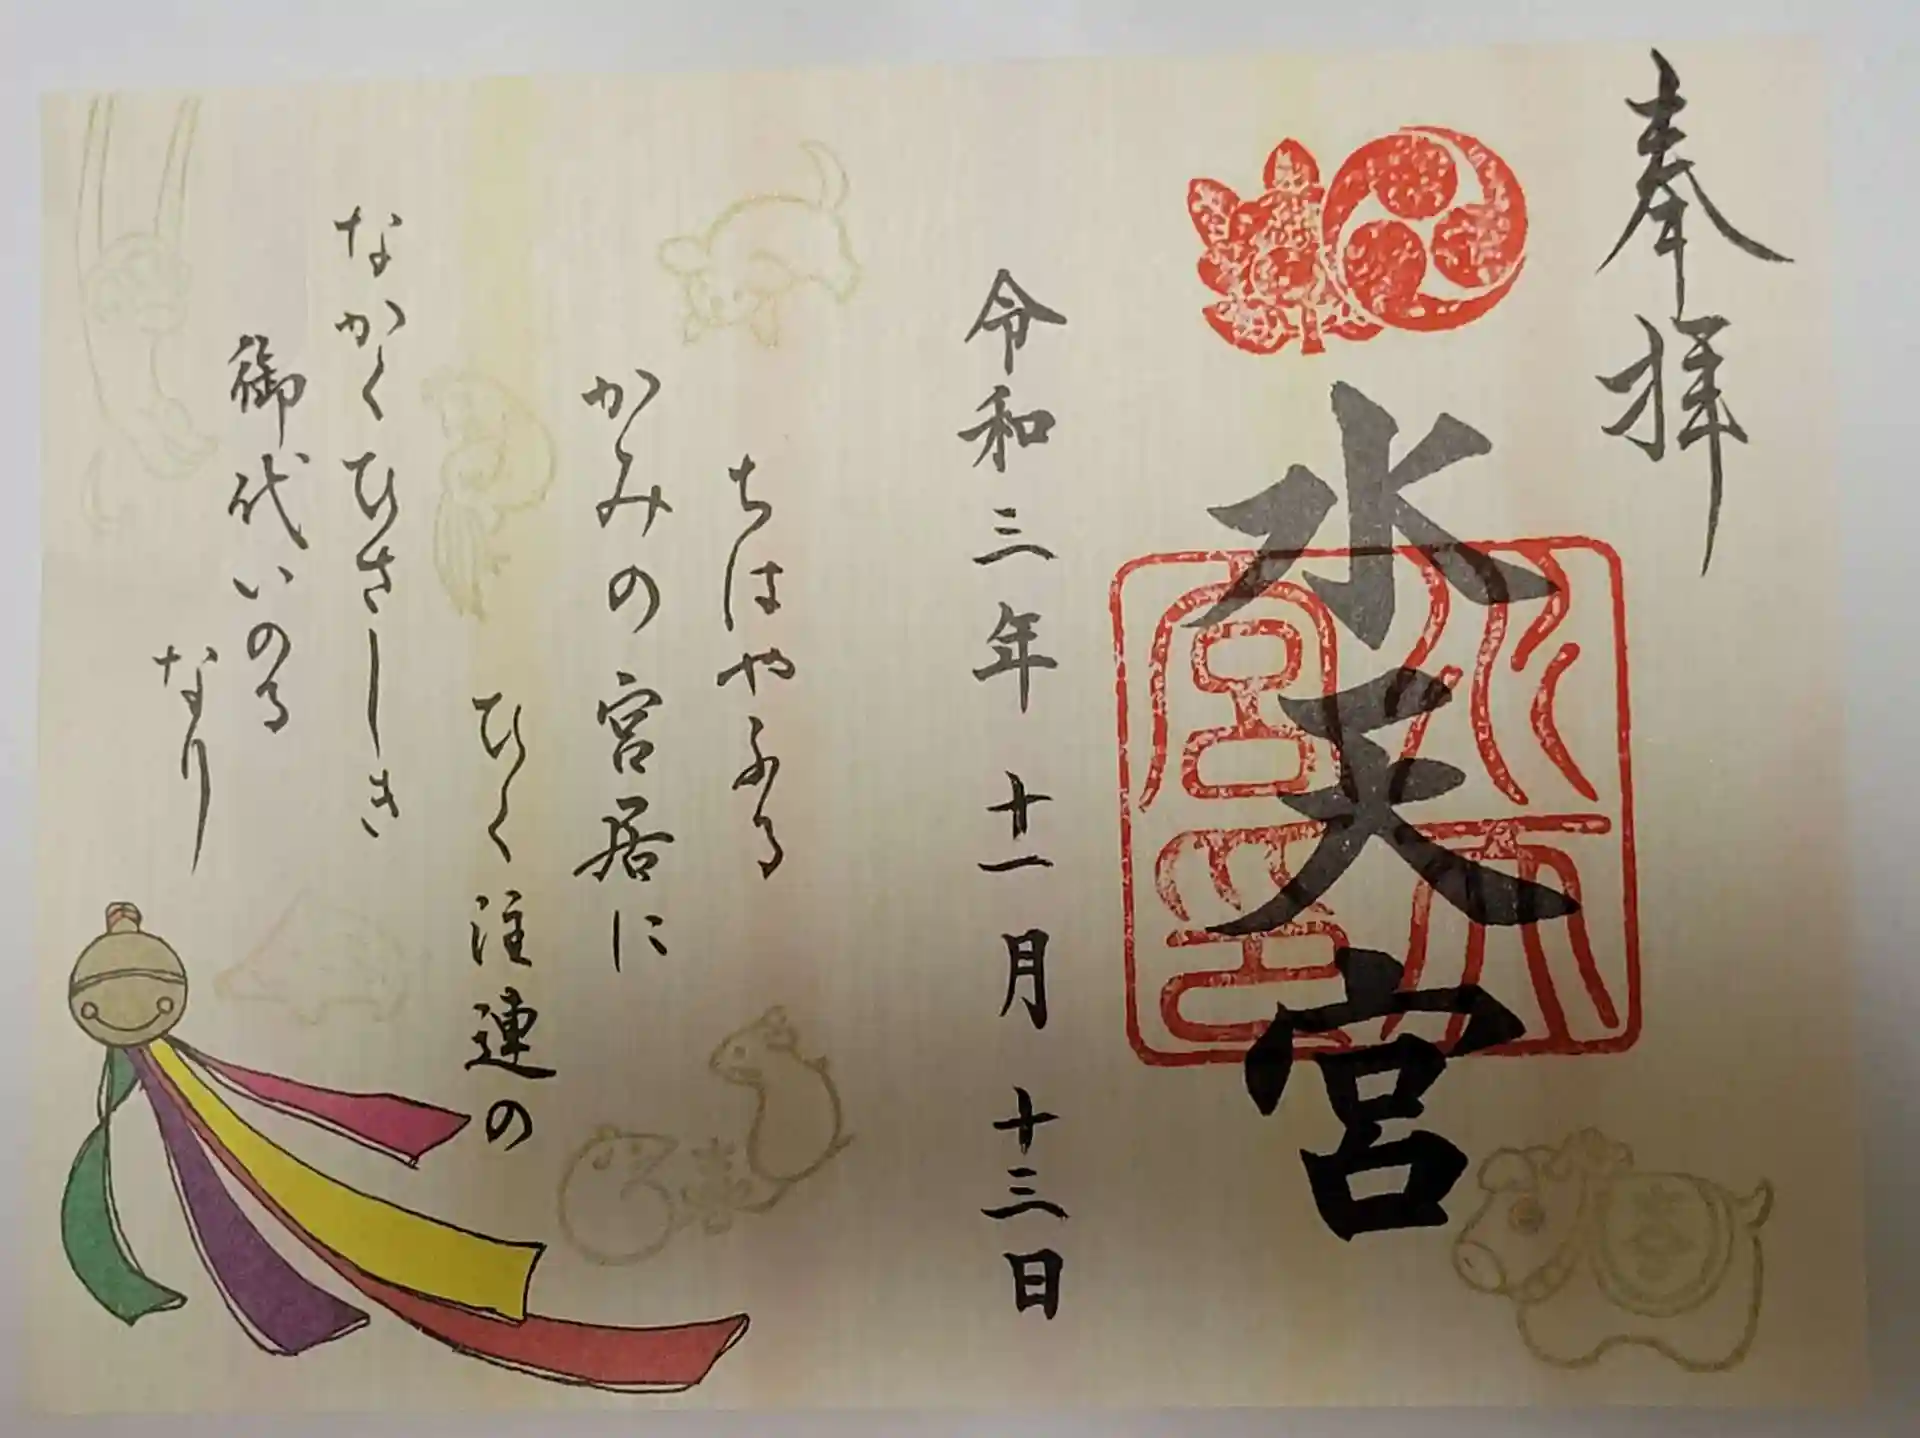 奉拝
水天宮
令和三年十一月十三日
ちはやふる
かみの宮居に
ひく注連の
なかくひさしき
御代いのる
なり